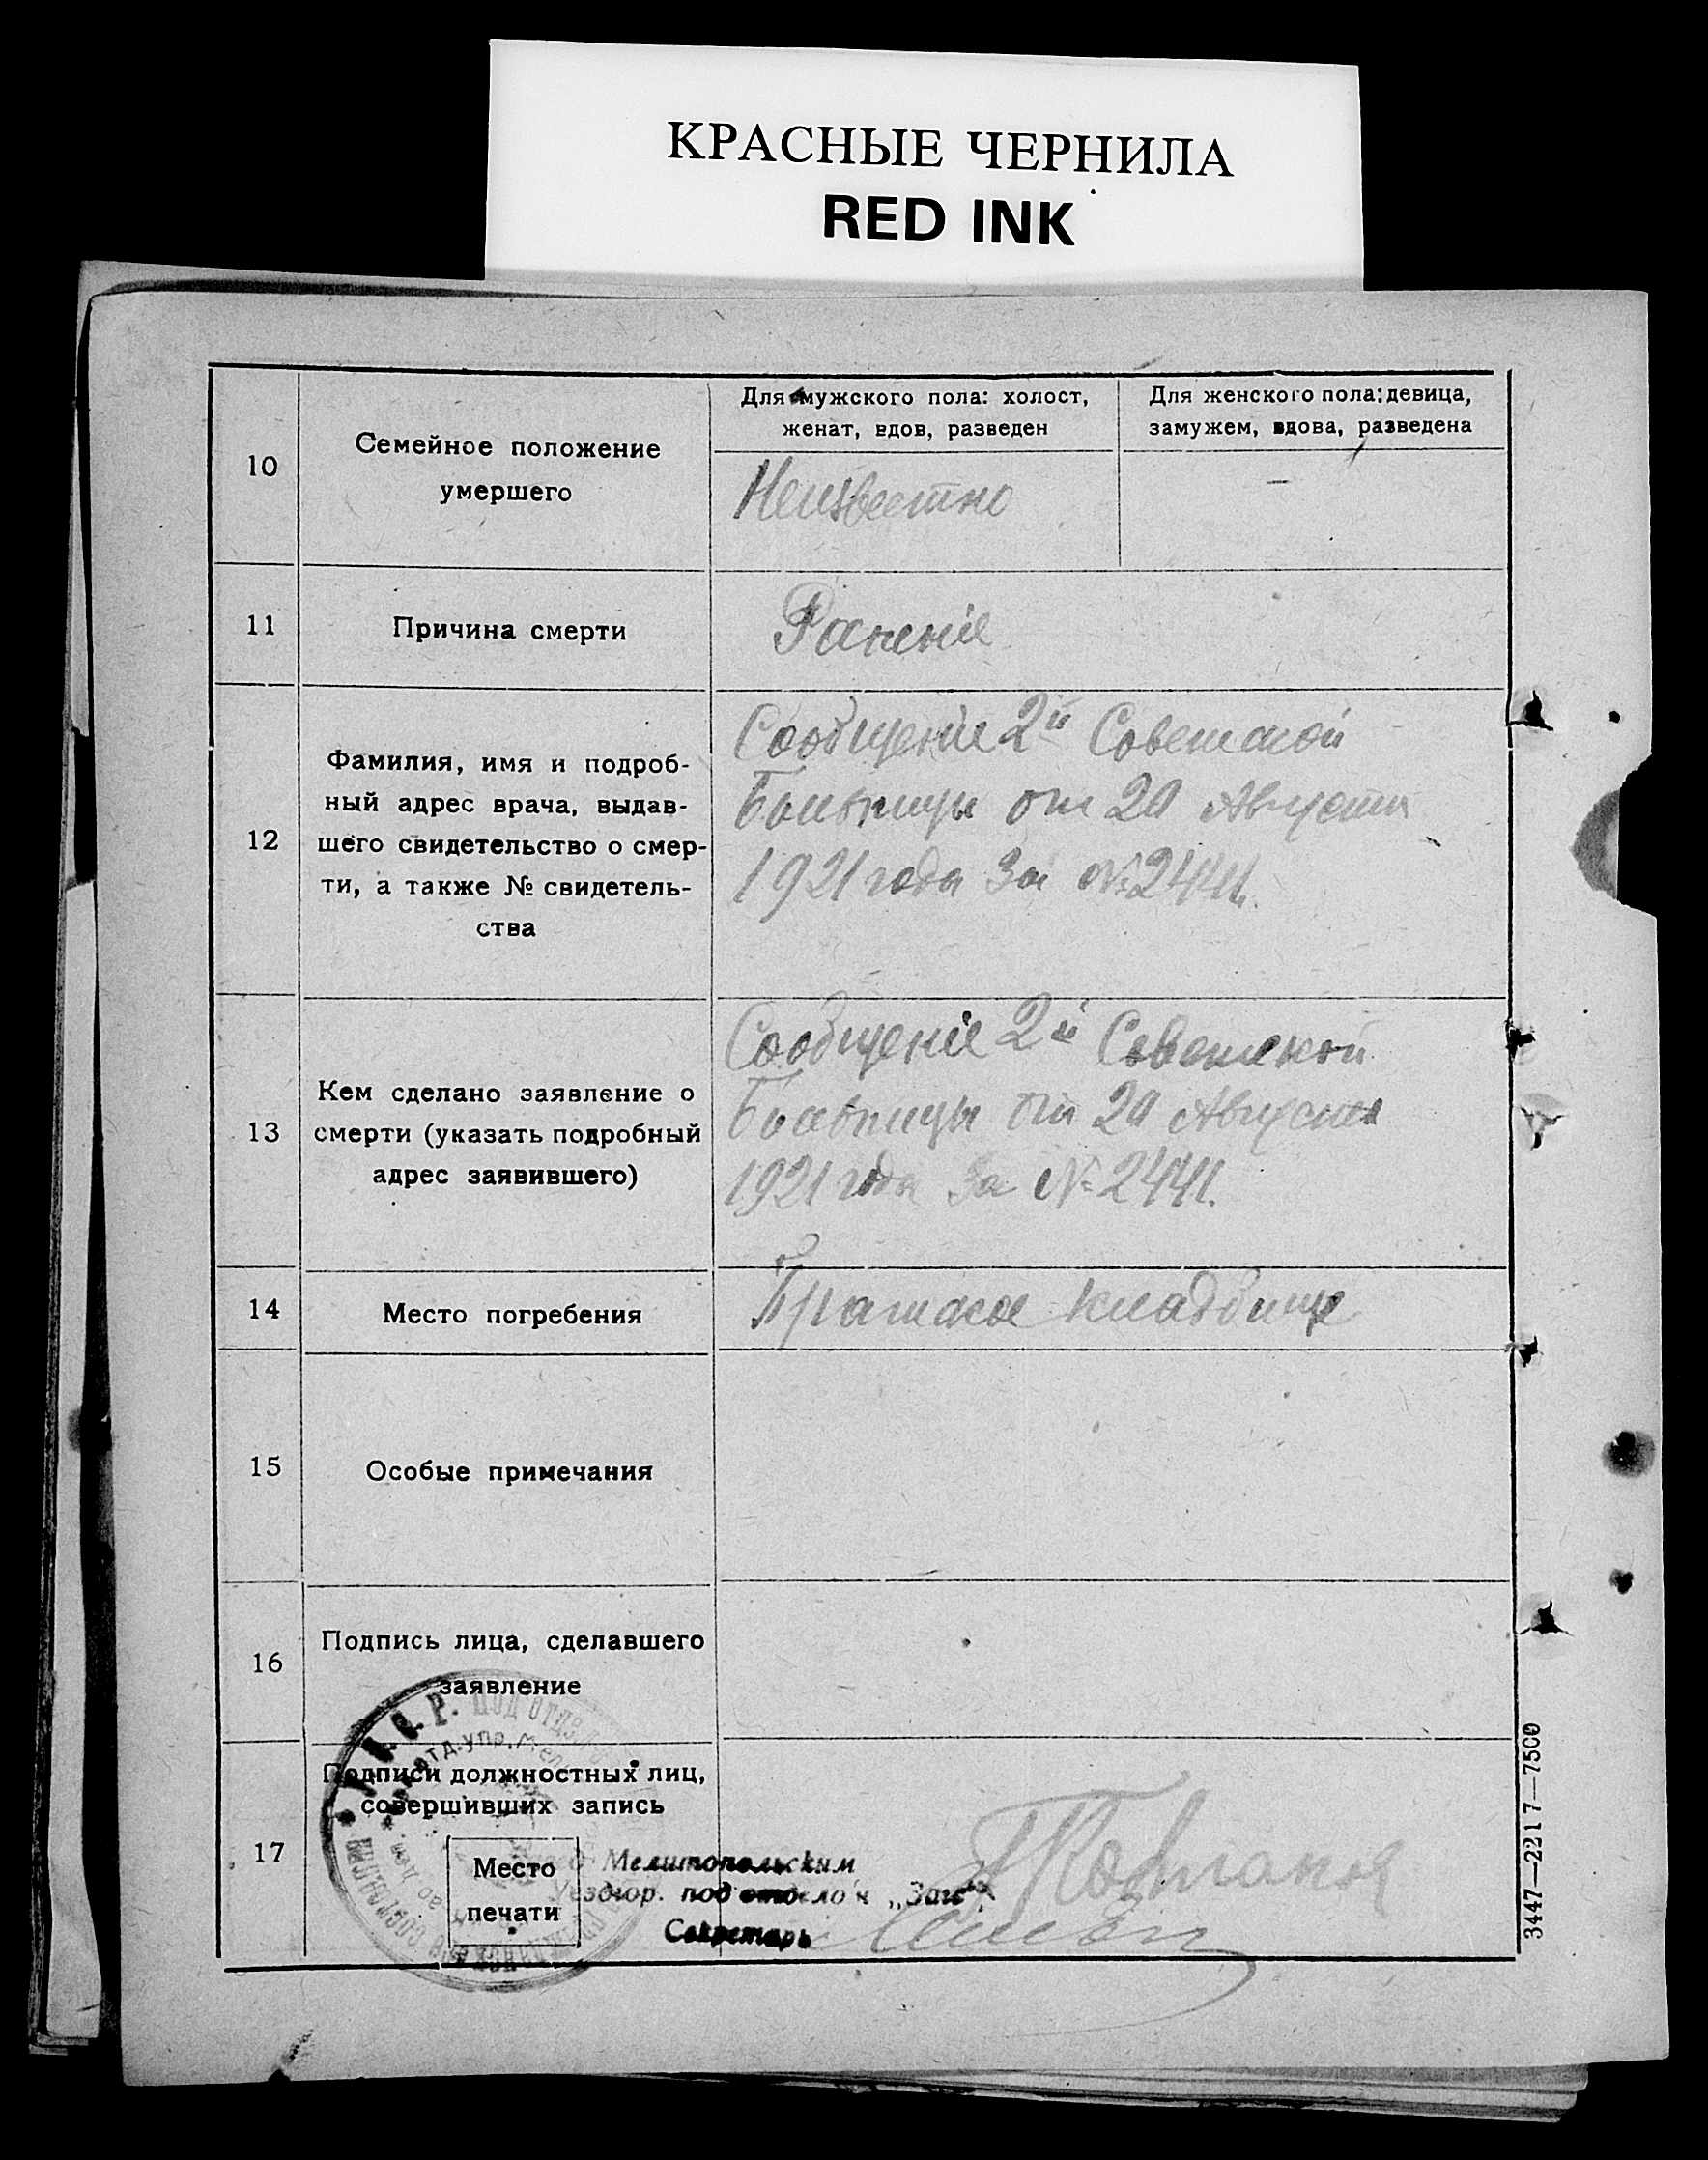 КРАСНЫЕ ЧЕРНИЛА
RED INK
10
Семейное положение
умершего
Для мужского пола: холост,
женат, вдов, разведен
Для женского пола: девица,
замужем, вдова, разведена
Неизвестно
–
11
Причина смерти
Раненіе
12
Фамилия, имя и подроб-
ный адрес врача, выдав-
шего свидетельство о смер-
ти, а также № свидетель-
ства
Сообщеніе 2й Советской
Больницы от 20 Августа
1921 года За № 2441.
13
Кем сделано заявление о
смерти (указать подробный
адрес заявившего)
Сообщеніе 2й Советской
Больницы от 20 Августа
1921 года За № 2441.
14
Место погребения
Братское кладбище
15
Особые примечания
16
Подпись лица, сделавшего
заявление
17
Подписи должностных лиц,
совершивших запись
Место
печати
Мелитопольским
Уездгор. подотделом „Загс"
Секретарь
3447—2217—7500